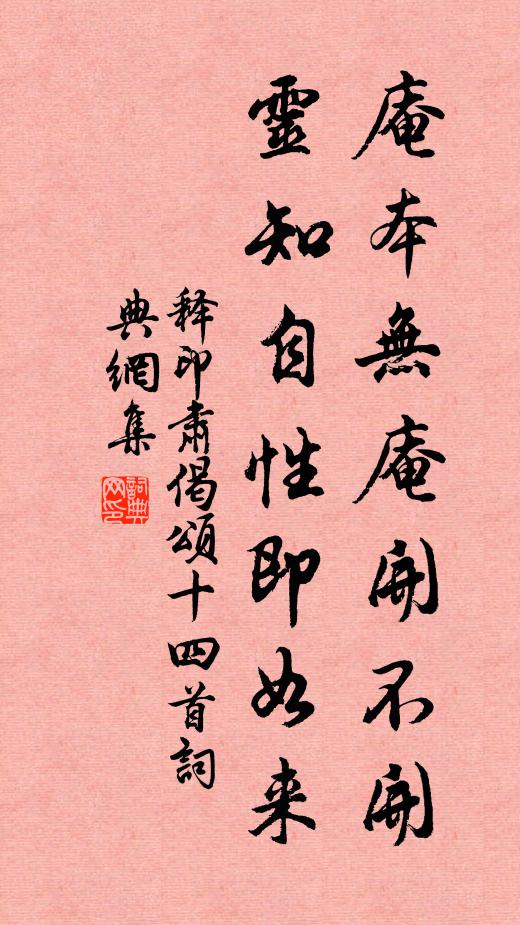 庵本無庵開不開
靈知自性即如来
释印肅偈頌十四首詞
典網集
詞典網印